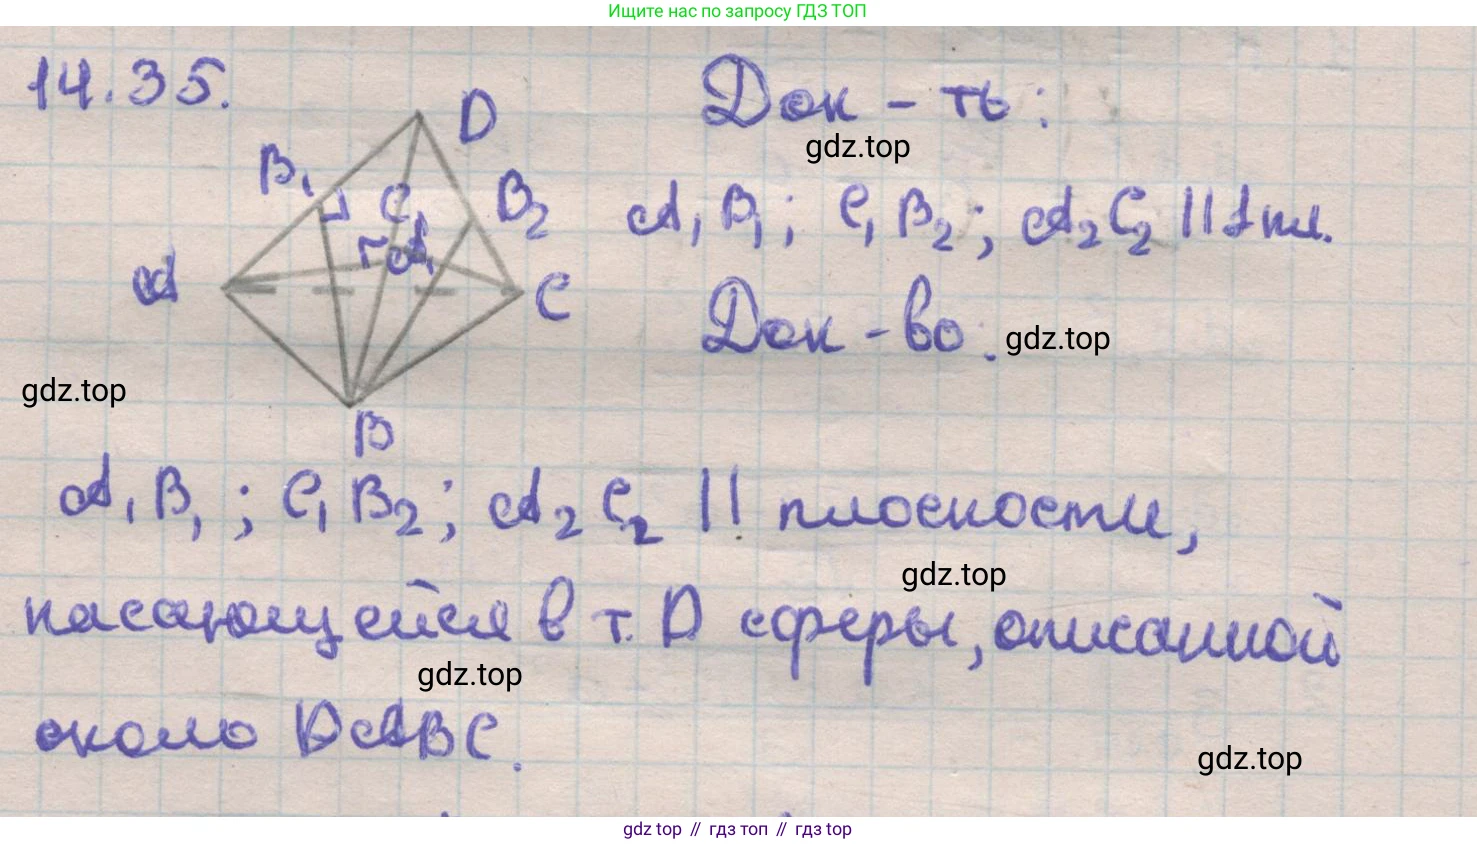 Ищите нас по запросу ГДЗ ТОП
14.35.
D
Док-ть:
gdz.top
B₁
C₁
B₂
A₁B₁; C₁B₂; A₂C₂ || 1 пл.
A₁
A
C
Док-во:
gdz.top
gdz.top
B
A₁B₁; C₁B₂; A₂C₂ || плоскости,
gdz.top
касающейся в т. D сферы, описанной
gdz.top
около DABC.
gdz.top
gdz top // гдз топ // гдз top